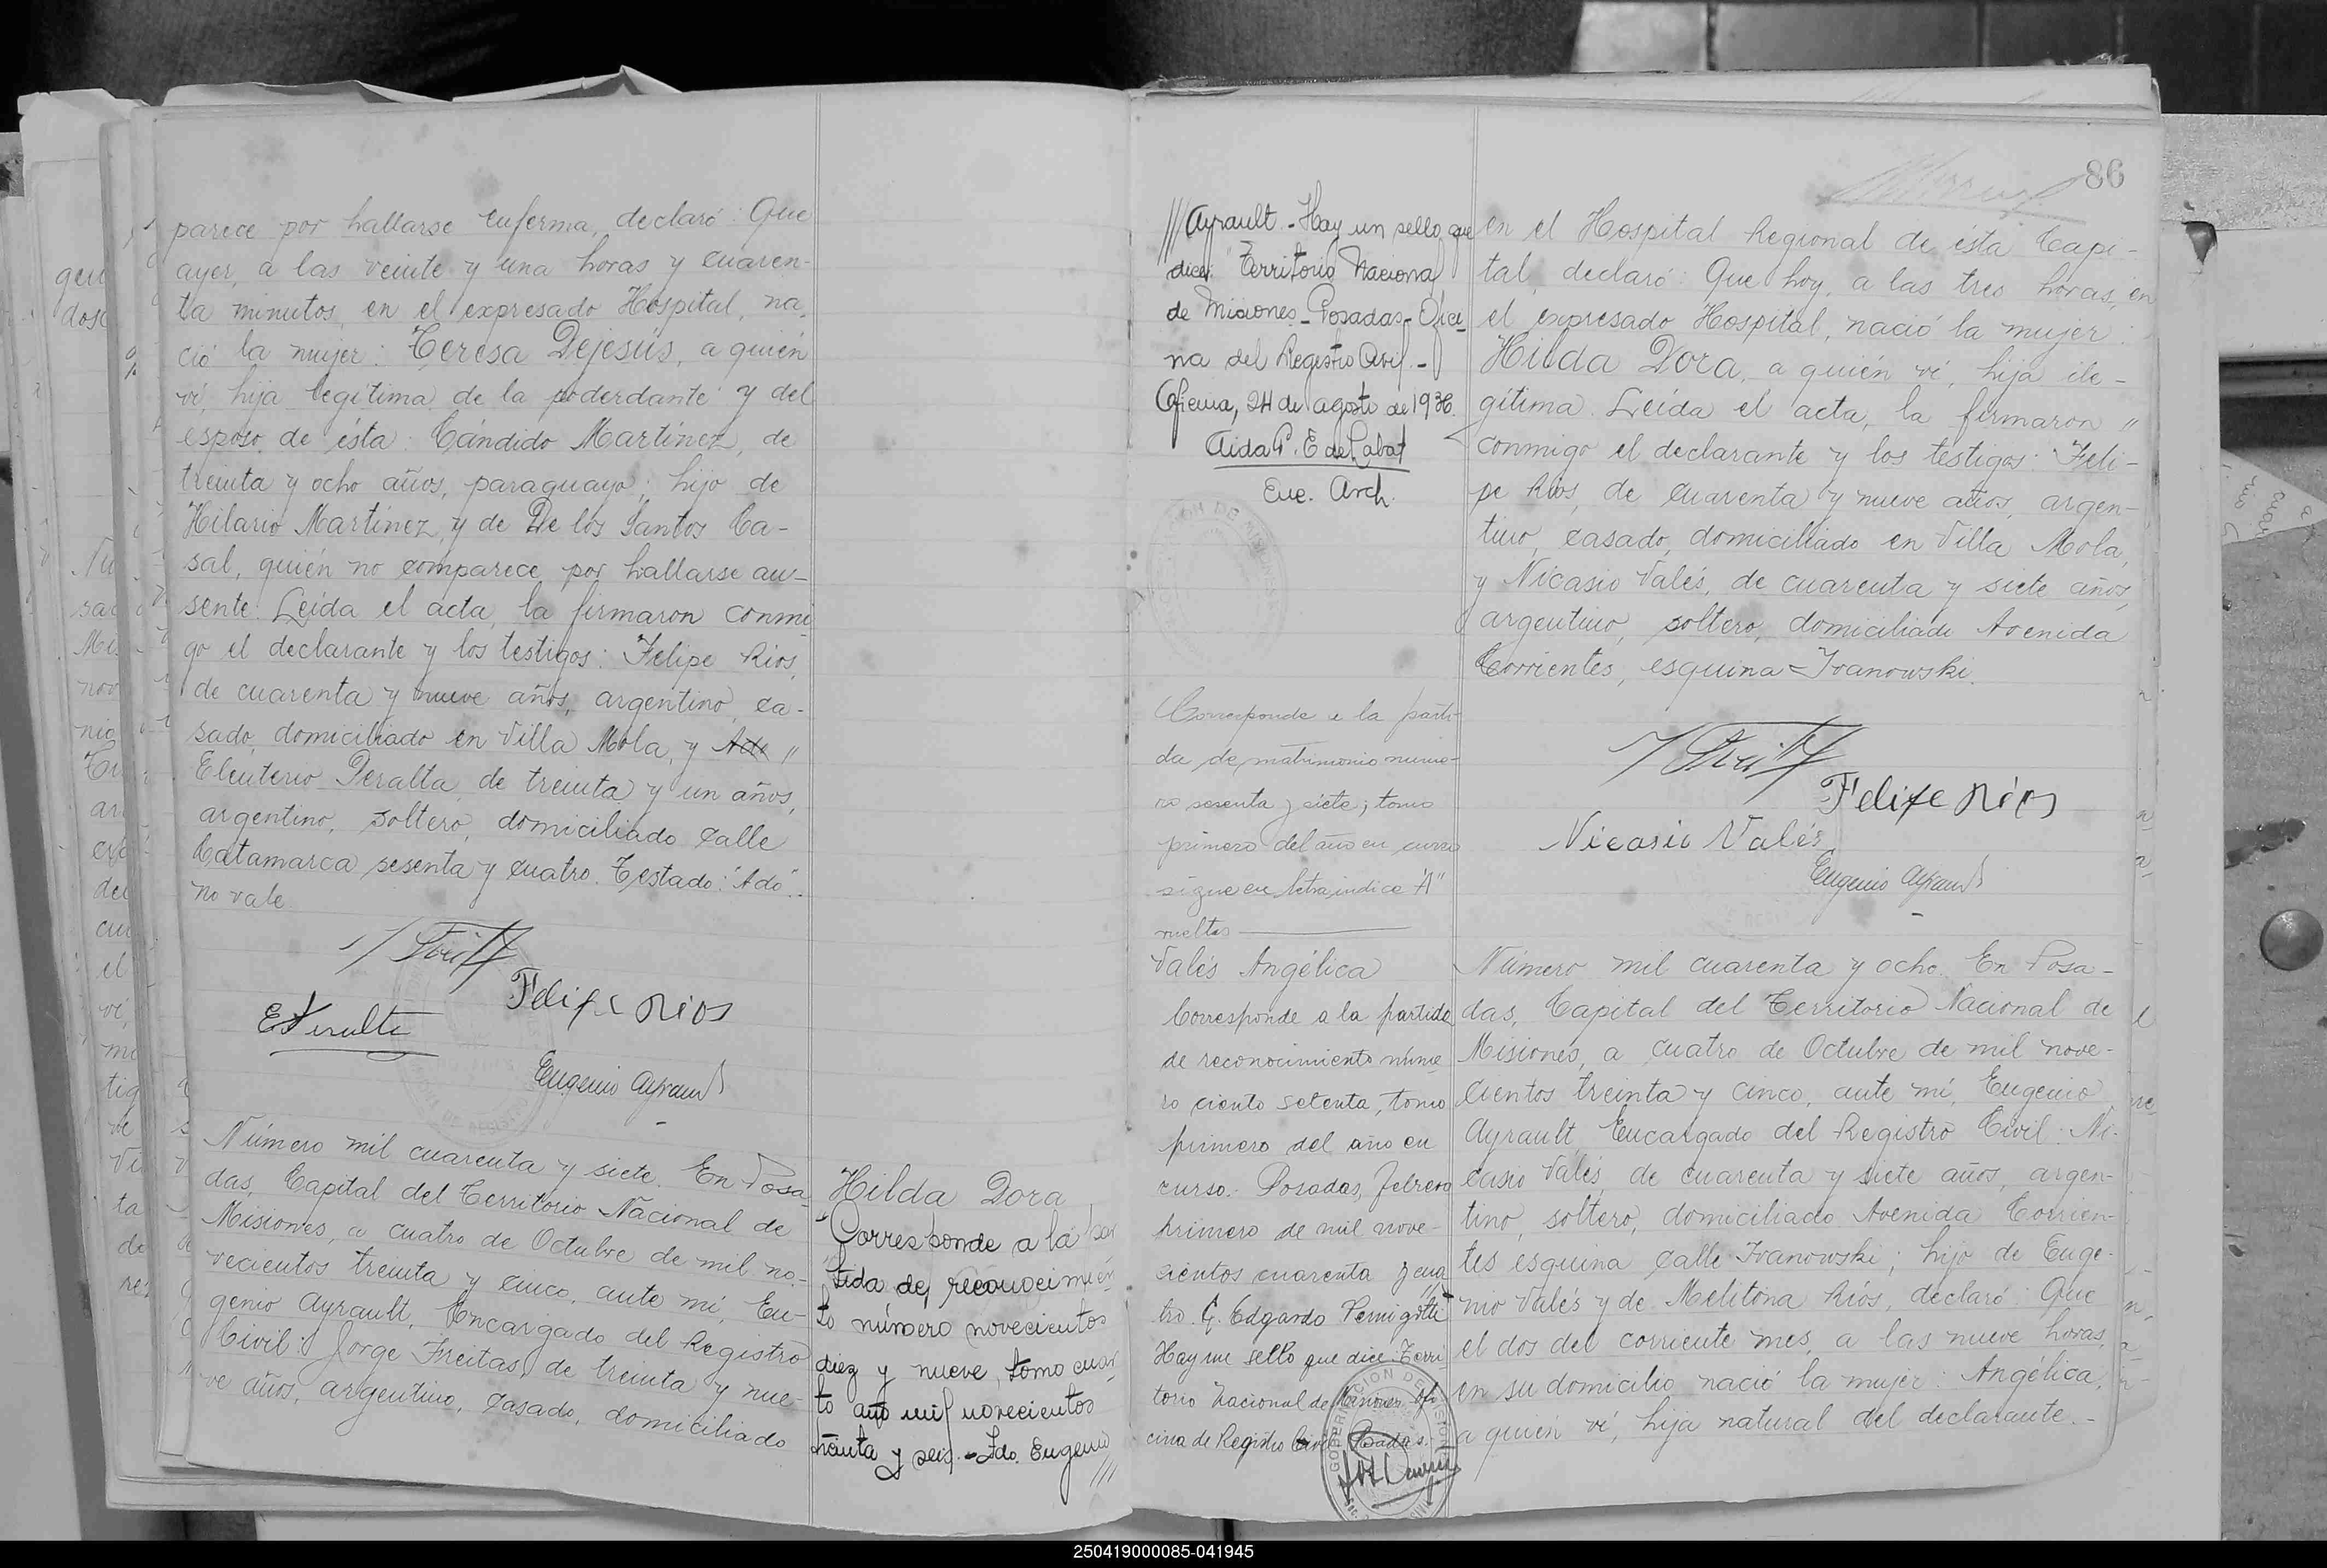 parece por hallarse enferma, declaró: Que
ayer, a las veinte y una horas y cuaren-
ta minutos, en el expresado Hospital, na,
ció la mujer: Teresa Dejesús, a quién
ví, hija legítima de la poderdante y del
esposo de ésta: Cándido Martínez, de
treinta y ocho años, paraguayo; hijo de
Hilario Martínez, y de De los Santos Ca-
sal, quién no comparece por hallarse au-
sente. Leída el acta, la firmaron conmi
go el declarante y los testigos: Felipe Ríos,
de cuarenta y nueve años, argentino, ca-
sado, domiciliado en Villa Mola, y Ado "
Eleuterio Peralta, de treinta y un años,
argentino, soltero, domiciliado calle
Catamarca sesenta y cuatro. Testado: "Ado"..
no vale
Felipe Ríos
EPeralta
Eugenio Ayrault
Número mil cuarenta y siete. En Posa
das, Capital del Territorio Nacional de
Misiones, a cuatro de Octubre de mil no-
vecientos treinta y cinco, ante mí, Eu-
genio Ayrault, Encargado del Registro
Civil: Jorge Freitas, de treinta y nue-
ve años, argentino, casado, domiciliado
Hilda Dora
Corresponde a la par
tida de reconocimien
to número novecientos
diez y nueve, tomo cuar
to año mil novecientos
treinta y seis.-Fdo. Eugenio
///
86
///Ayrault.-Hay un sello que
dice: Territorio Nacional
de Misiones-Posadas-Ofici_
na del Registro Civil.-
Oficina, 24 de agosto de 1936.
Aida P. E de Labat
Enc. Arch.
Corresponde a la parti-
da de matrimonio núme-
ro sesenta y siete; tomo
primero del año en curso
sigue en letra índice "A"
vueltas
Valés Angélica
Corresponde a la partida
de reconocimiento núme
ro ciento setenta, tomo
primero del año en
curso.- Posadas, febrero
primero de mil nove-
cientos cuarenta y cua
tro. G. Edgardo Pernigotti
Hay un sello que dice: Terri
torio Nacional de Misiones. Ofi
cina de Registro Civil Posadas.-
GOBERNACION DE MISIONES
en el Hospital Regional de ésta Capi-
tal, declaró: Que hoy, a las tres horas, en
el expresado Hospital, nació la mujer:
Hilda Dora, a quién ví, hija ile-
gítima. Leída el acta, la firmaron "
conmigo el declarante y los testigos: Feli-
pe Ríos, de cuarenta y nueve años, argen-
tino, casado, domiciliado en Villa Mola,
y Nicasio Valés, de cuarenta y siete años,
argentino, soltero, domiciliado Avenida
Corrientes, esquina Ivanowski.
Felipe Ríos
Nicasio Valés
Eugenio Ayrault
Número mil cuarenta y ocho. En Posa-
das, Capital del Territorio Nacional de
Misiones, a cuatro de Octubre de mil nove-
cientos treinta y cinco, ante mí, Eugenio
Ayrault, Encargado del Registro Civil: Ni-
casio Valés, de cuarenta y siete años, argen-
tino, soltero, domiciliado Avenida Corrien-
tes esquina calle Ivanowski; hijo de Euge-
nio Valés y de Melitona Ríos, declaró: Que
el dos del corriente mes, a las nueve horas,
en su domicilio nació la mujer: Angélica,
a quien ví, hija natural del declarante.-
250419000085-041945